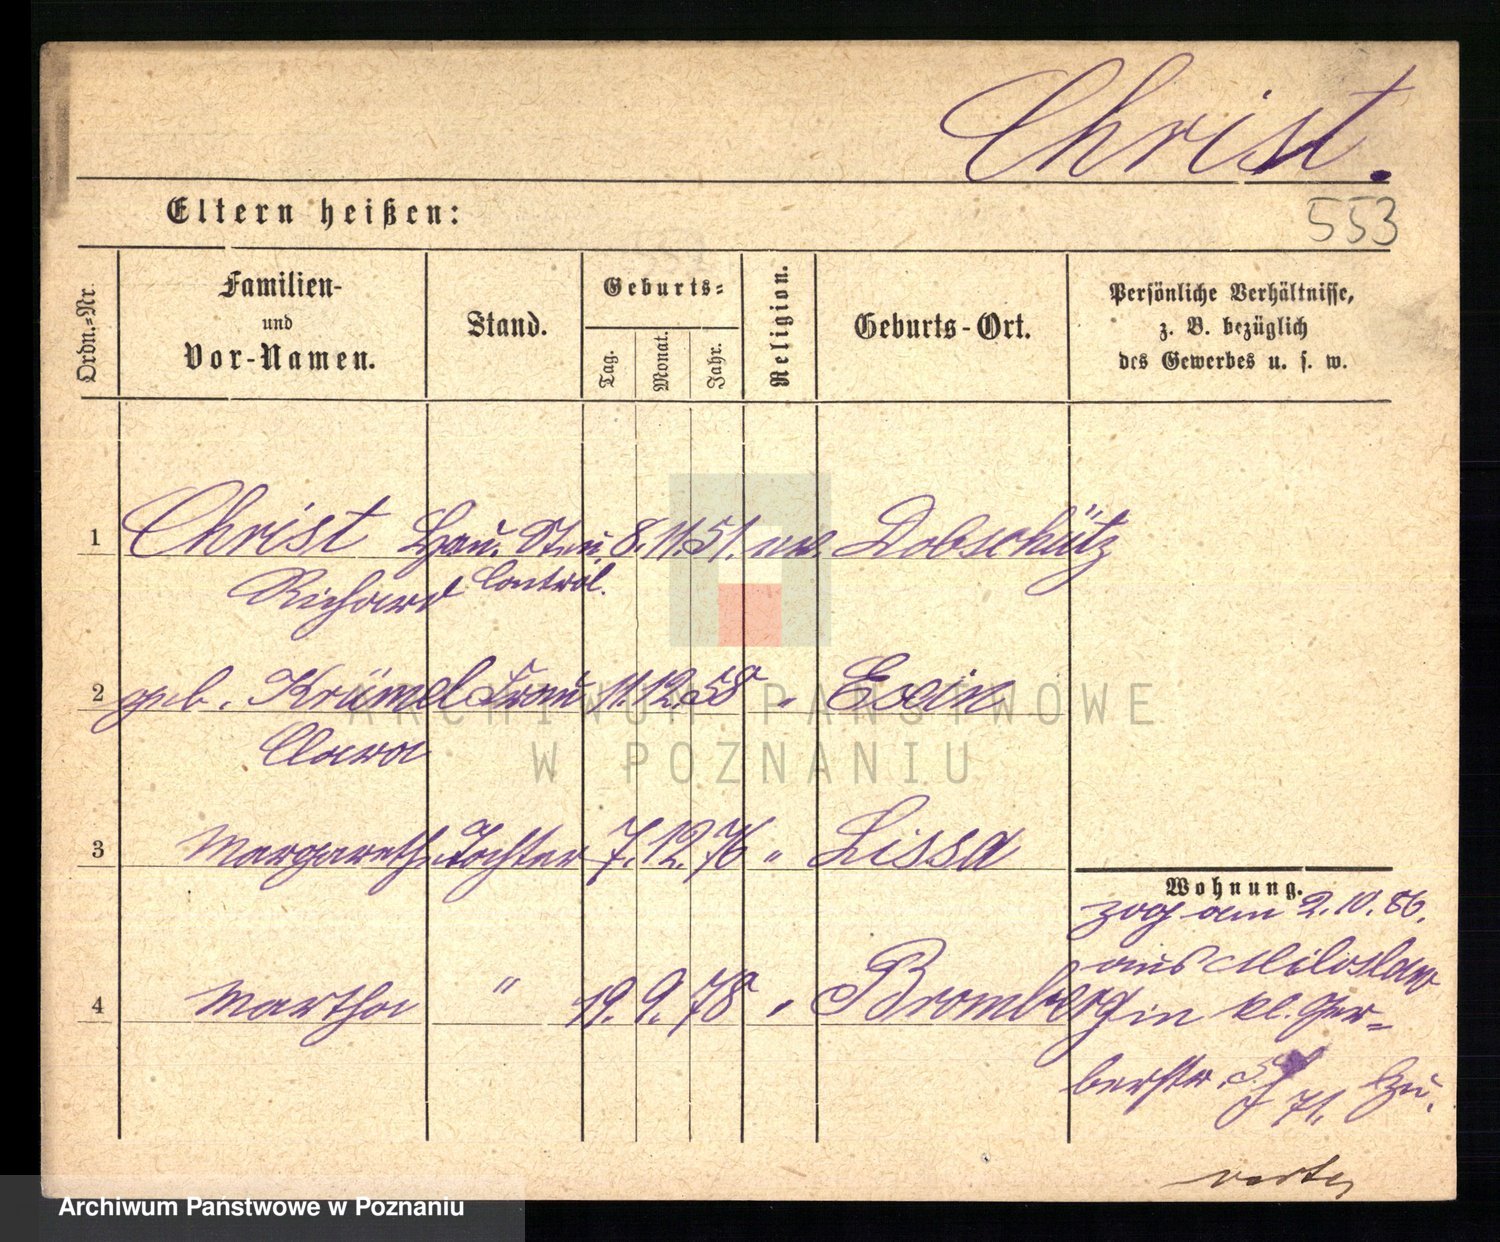 Christ.
Eltern heißen:
553
Ordn.-Nr.
Familien-
und
Vor-Namen.
Stand.
Geburts-
Tag.
Monat.
Jahr.
Religion.
Geburts-Ort.
Persönliche Verhältnisse,
z. B. bezüglich
des Gewerbes u. s. w.
1 Christ Steu. 8. 11. 51. Dobschütz
Richard Control.
2 geb. Krümel Frau 11. 12. 58 " Exin
Clara
3 Margareth. Tochter 7. 12. 76 " Lissa
Wohnung.
zog am 2. 10. 86.
aus Miloslaw
4 Martha " 19. 9. 78 " Bromberg
in kl. Ger-
berstr. 71.
ARCHIWUM PAŃSTWOWE
W POZNANIU
Archiwum Państwowe w Poznaniu